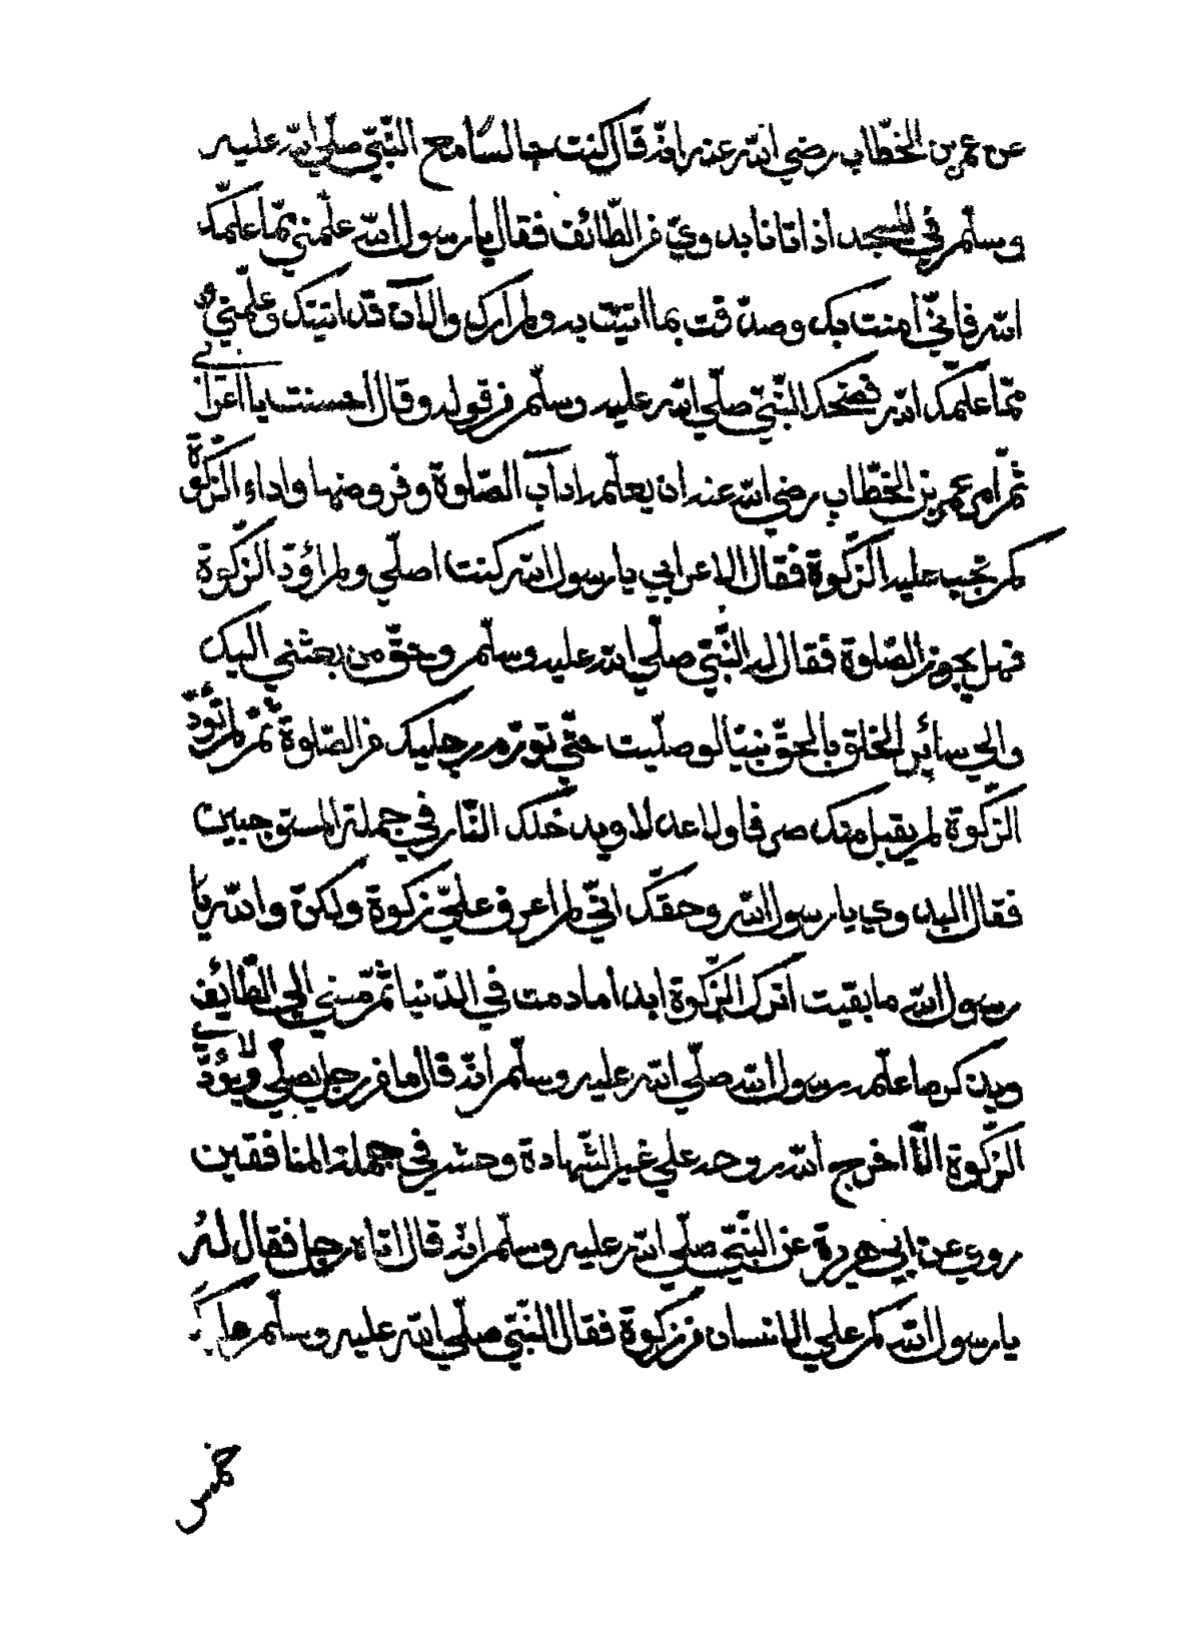 عن عمر بن الخطّاب رضي الله عنه انّه قال كنت جالسًا مع النّبيّ صلّي الله عليه
وسلّم في المسجد اذ اتانا بدويّ من الطّائف فقال يا رسول الله علّمني ممّا علّمك
الله فانّي امنت بك وصدّقت بما اتيت به ولم ارك والآن قد اتيتك وعلّمني
ممّا علّمك الله فضحك النّبيّ صلّي الله عليه وسلّم من قوله وقال احسنت يا اعرابي
ثمّ امر عمر بن الخطّاب رضي الله عنه ان يعلّمه اداب الصّلوة وفروضها واداء الزّكوة
كم تجب عليه الزّكوة فقال الاعرابي يا رسول الله كنت اصلّي ولم اؤدّ الزّكوة
فهل يجوز الصّلوة فقال له النّبيّ صلّي الله عليه وسلّم وحقّ من بعثني اليك
والي سائر الخلق بالحقّ نبيّا لو صلّيت حتّي تورّم رجليك من الصّلوة ثمّ لم تؤدّ
الزّكوة لم يقبل منك صرفا ولا عدلا ويدخلك النّار في جملة المستوجبين
فقال البدوي يا رسول الله وحقّك انّي لم اعرف عليّ زكوة ولكن والله يا
رسول الله ما بقيت اترك الزّكوة ابدا ما دمت في الدّنيا ثمّ مضي الي الطّائف
ويذكر ما علّمه رسول الله صلّي الله عليه وسلّم انّه قال ما من رجل يصلّي ولا يؤدّي
الزّكوة الّا اخرج الله روحه علي غير الشّهادة وحشر في جملة المنافقين
روي عن ابي هريرة عن النّبيّ صلّي الله عليه وسلّم انّه قال اتاه رجل فقال له
يا رسول الله كم علي الانسان من زكوة فقال النّبيّ صلّي الله عليه وسلّم علي كلّ
خمس